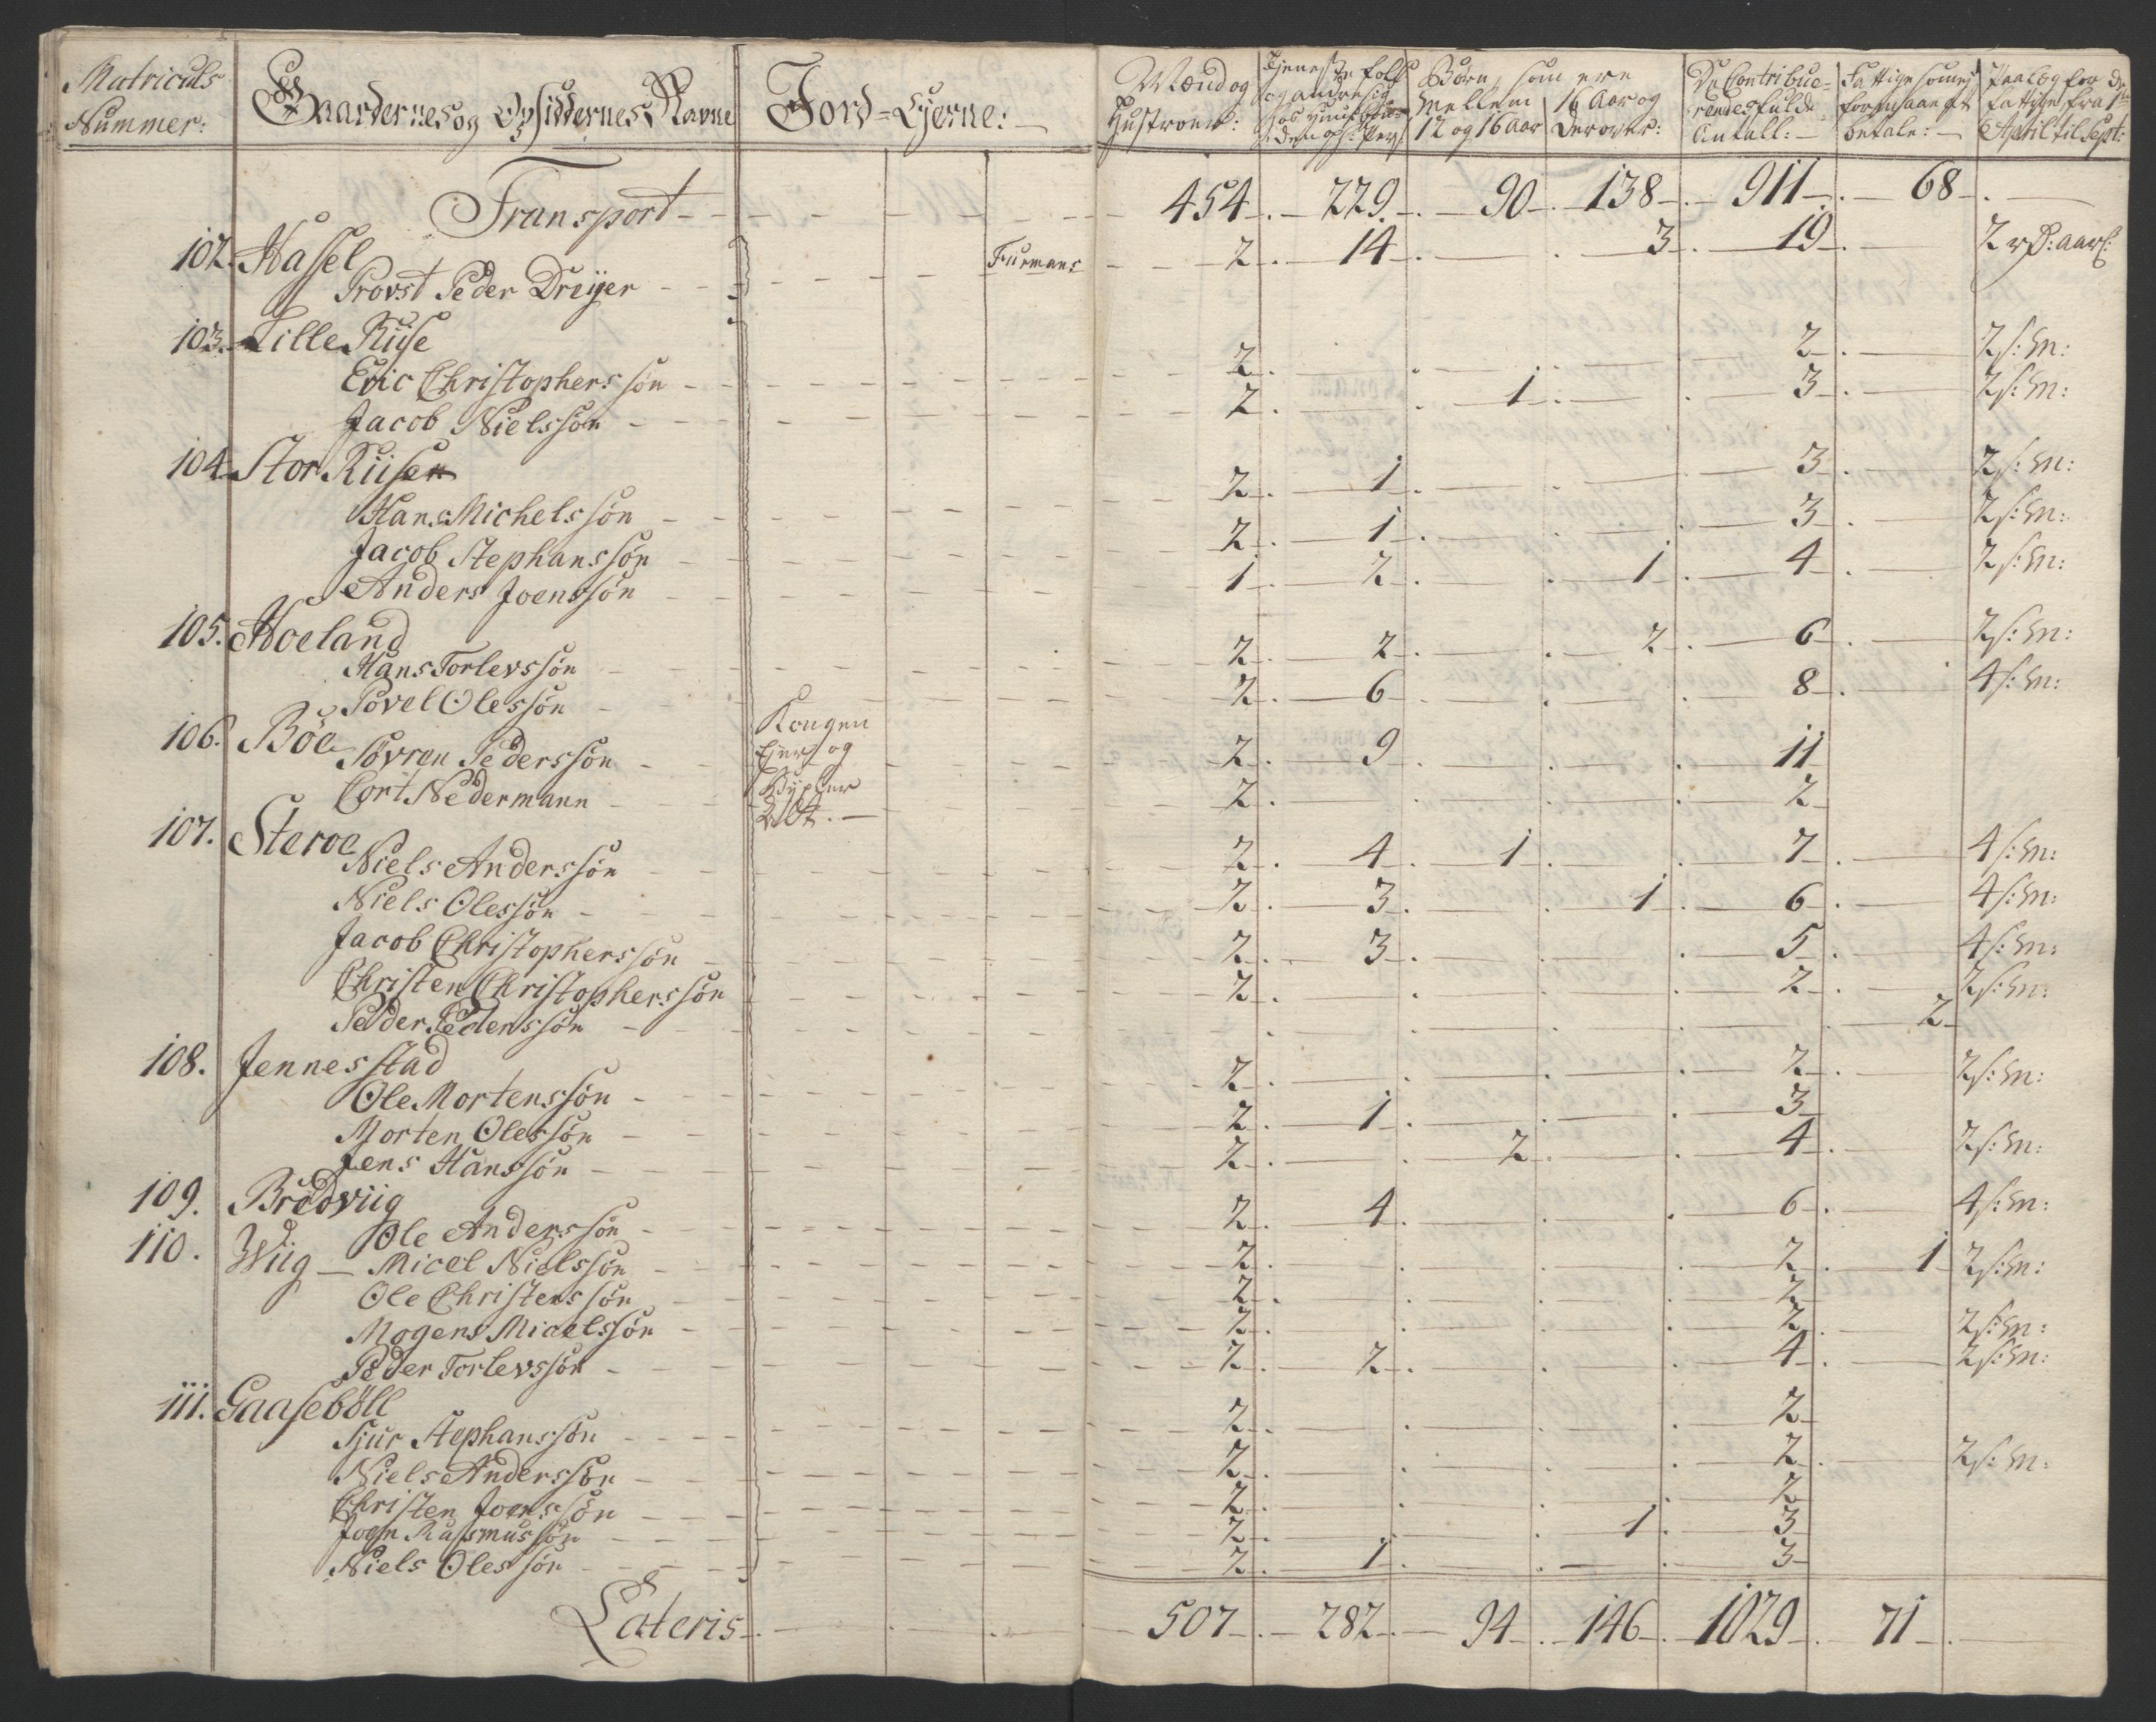 Matriculs Nummer: Gaardernes og Opsiddernes Navne Jord-Ejerne: Mænd og Hustroer: Tieneste folk og andre sig Børn, som ere mellem 12 og 16 Aar 16 Aar og derover: De Contribuerendes fulde Antall: Fattige som ej formaaer at betale: Paalæg for de fattige fra 1te April til Sept:
Transport 454 229 90 138 911 68
102. Hassel Furmans 2 14 3 19 2 rd: aarl:
Provst Peder Dreyer
103. Lille Riise
Eric Christopherssøn 2 2 2 s: M:
Jacob Nielssøn 2 1 3 2 s: M:
104 Stor Riisen
Hans Michelssøn 2 1 3 2 s: M:
Jacob Stephanssøn 2 1 3 2 s: M:
Anders Joenssøn 1 2 1 4 2 s: M:
105. Hoeland
Hans Torlevssøn 2 2 2 6 2 s: M:
Povel Olessøn 2 6 8 4 s: M:
106. Böe Søvren Pederssøn Kongen Ejer og Bypler Alt. 2 9 11
Cort Nedermann 2 2
107. Steroe
Niels Anderssøn 2 4 1 7 4 s: M:
Niels Olessøn 2 3 1 6 4 s: M:
Jacob Christopherssøn 2 3 5 4 s: M:
Christen Christopherssøn 2 2 2 s: M:
Peder Pederssøn 2
108. Jennesstad
Ole Mortenssøn 2 2 2 s: M:
Morten Olessøn 2 1 3
Jens Hanssøn 2 2 4 2 s: M:
109. Bredviig
Ole Anderssøn 2 4 6 4 s: M:
110. Wiig Micel Nielssøn 2 2 1 2 s: M:
Ole Christenssøn 2 2
Mogens Micelssøn 2 2 2 s: M:
Peder Torlevssøn 2 2 4 2 s: M:
111. Gaasebøll
Sjur Stephanssøn 2 2
Niels Anderssøn 2 2 2 s: M:
Christen Joenssøn 2 2
Joen Rasmussøn 2 1 3
Niels Olessøn 2 1 3
Lateris 507 282 94 146 1029 71